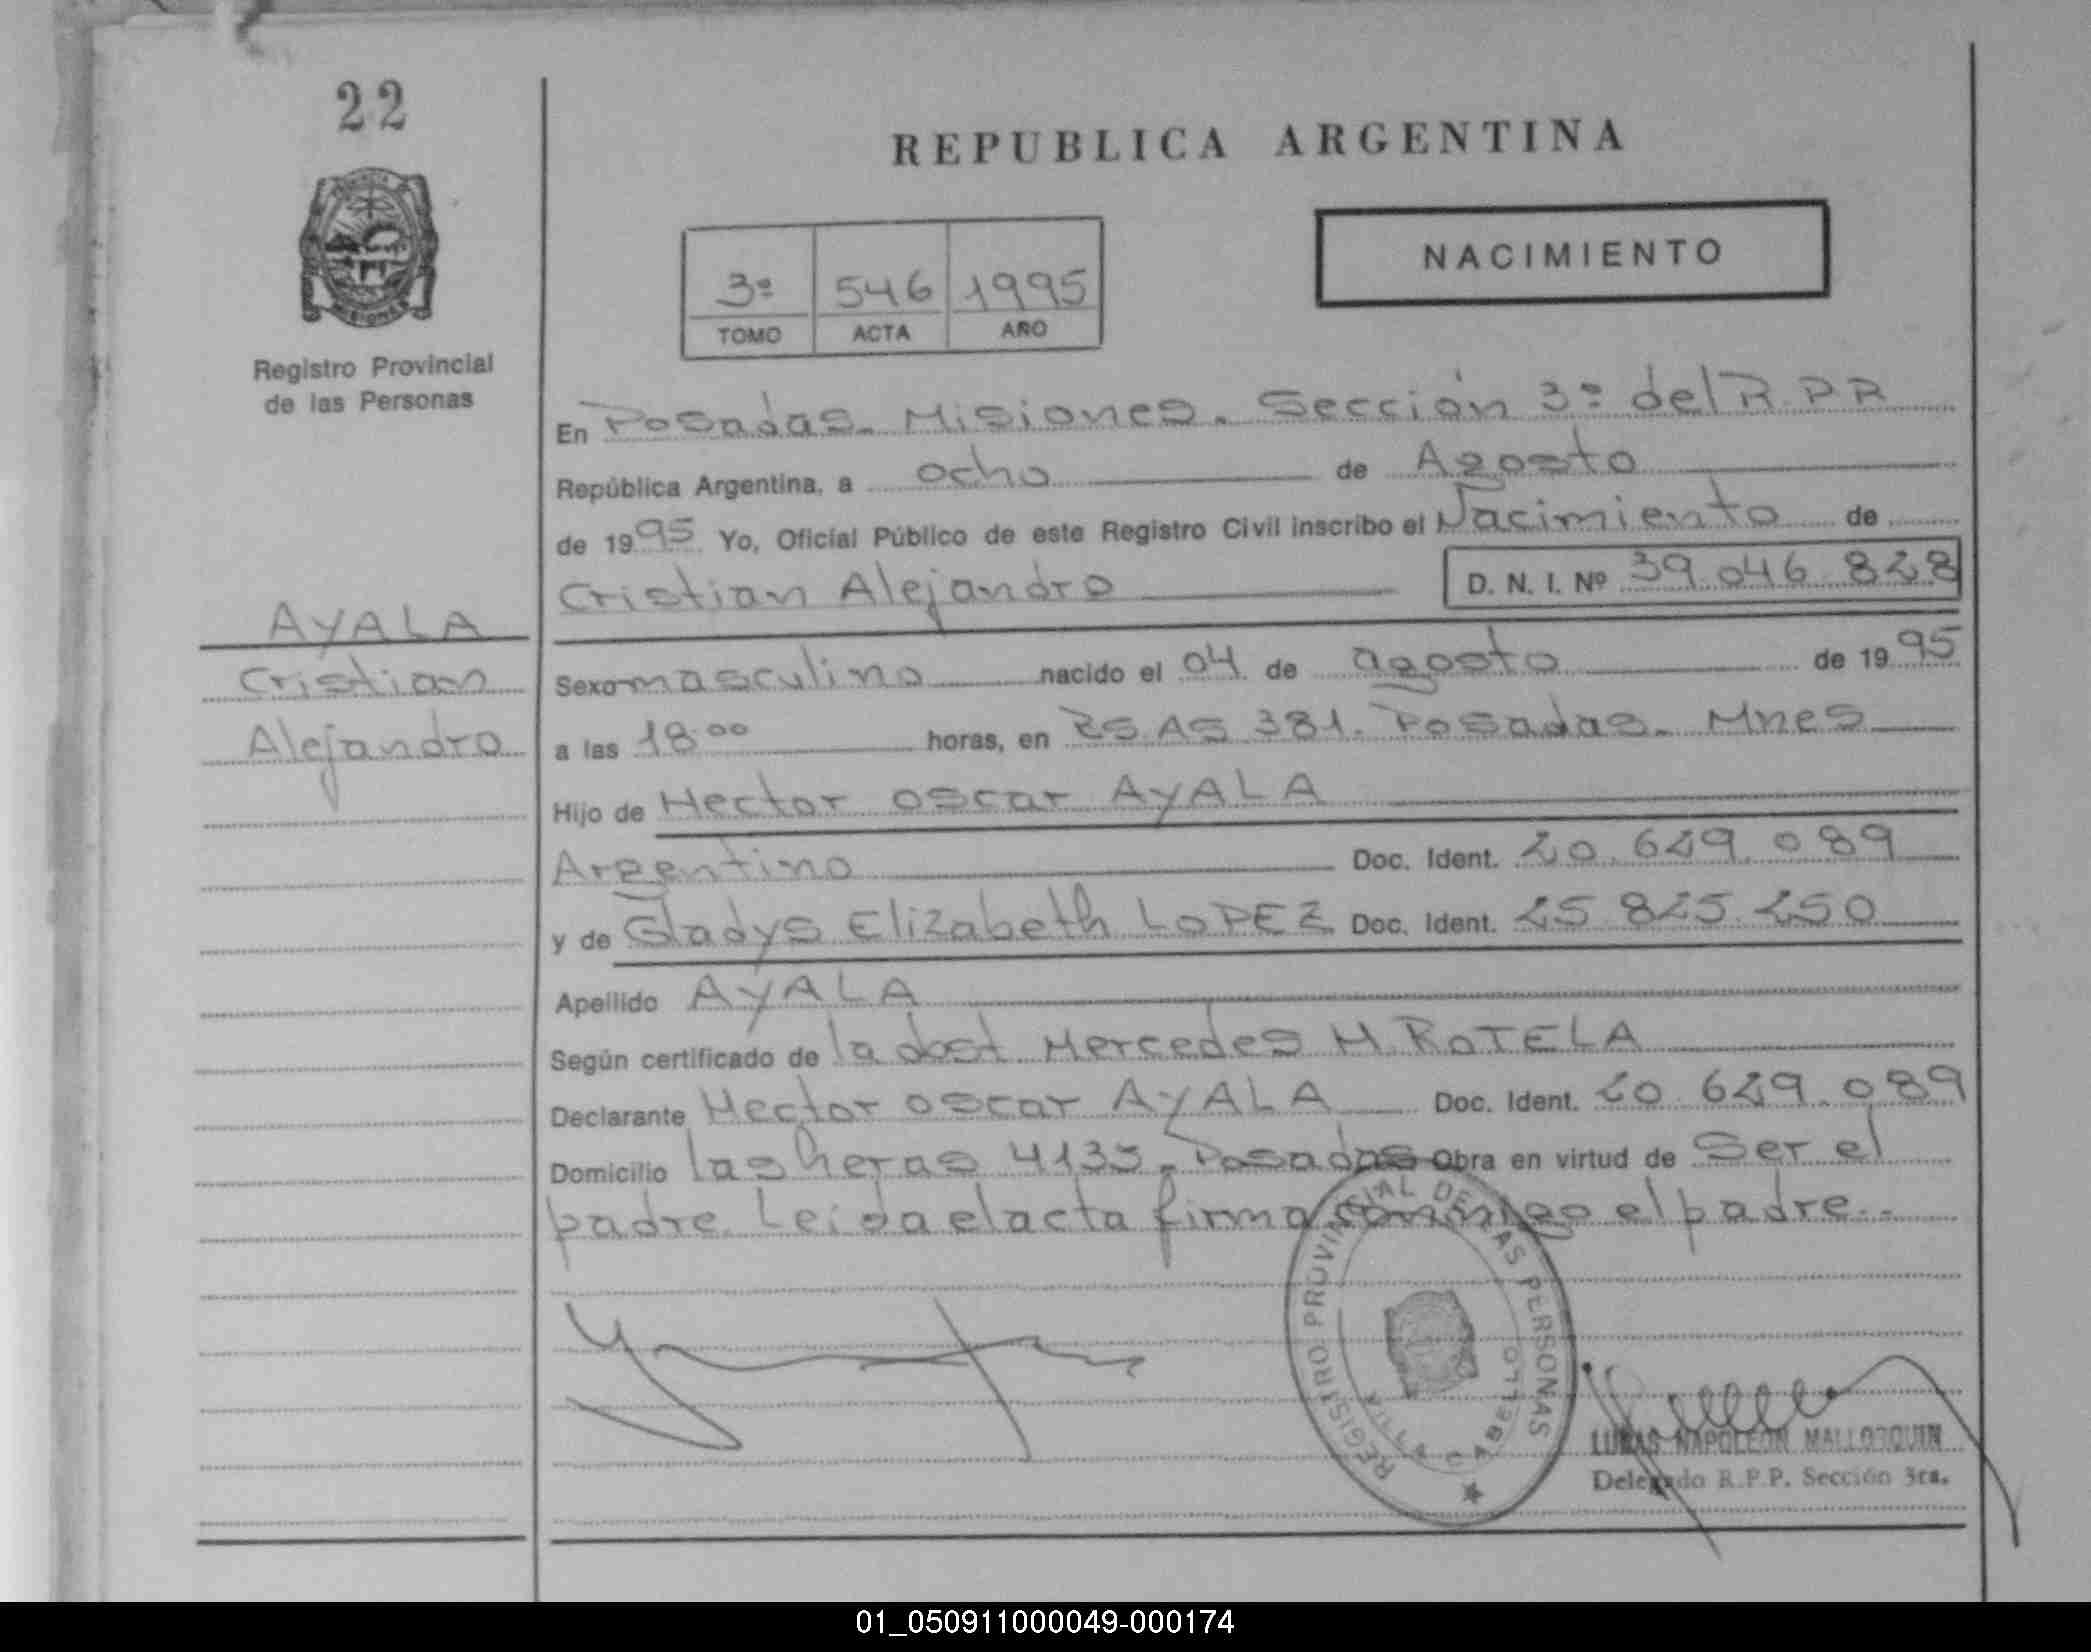 22
Registro Provincial
de las Personas
REPUBLICA ARGENTINA
NACIMIENTO
3º 546 1995
TOMO ACTA AÑO
En Posadas. Misiones. Sección 3º del R.P.P.
República Argentina, a ocho de Agosto
de 1995 Yo, Oficial Público de este Registro Civil inscribo el Nacimiento de
Cristian Alejandro D. N. I. Nº 39.046.828
AYALA
Cristian
Alejandro
Sexo masculino nacido el 04 de agosto de 1995
a las 18:00 horas, en Bs. As 381. Posadas. Mnes
Hijo de Hector Oscar AYALA
Argentino Doc. Ident. 20.629.089
y de Gladys Elizabeth LOPEZ Doc. Ident. 25.825.250
Apellido AYALA
Según certificado de la obst Mercedes M. ROTELA
Declarante Hector Oscar AYALA Doc. Ident. 20.629.089
Domicilio las heras 4135. Posadas Obra en virtud de Ser el
padre. Leida el acta firma conmigo el padre..
REGISTRO PROVINCIAL DE LAS PERSONAS
VILLA CABELLO
LUCAS NAPOLEON MALLORQUIN
Delegado R.P.P. Sección 3ra.
01_050911000049-000174